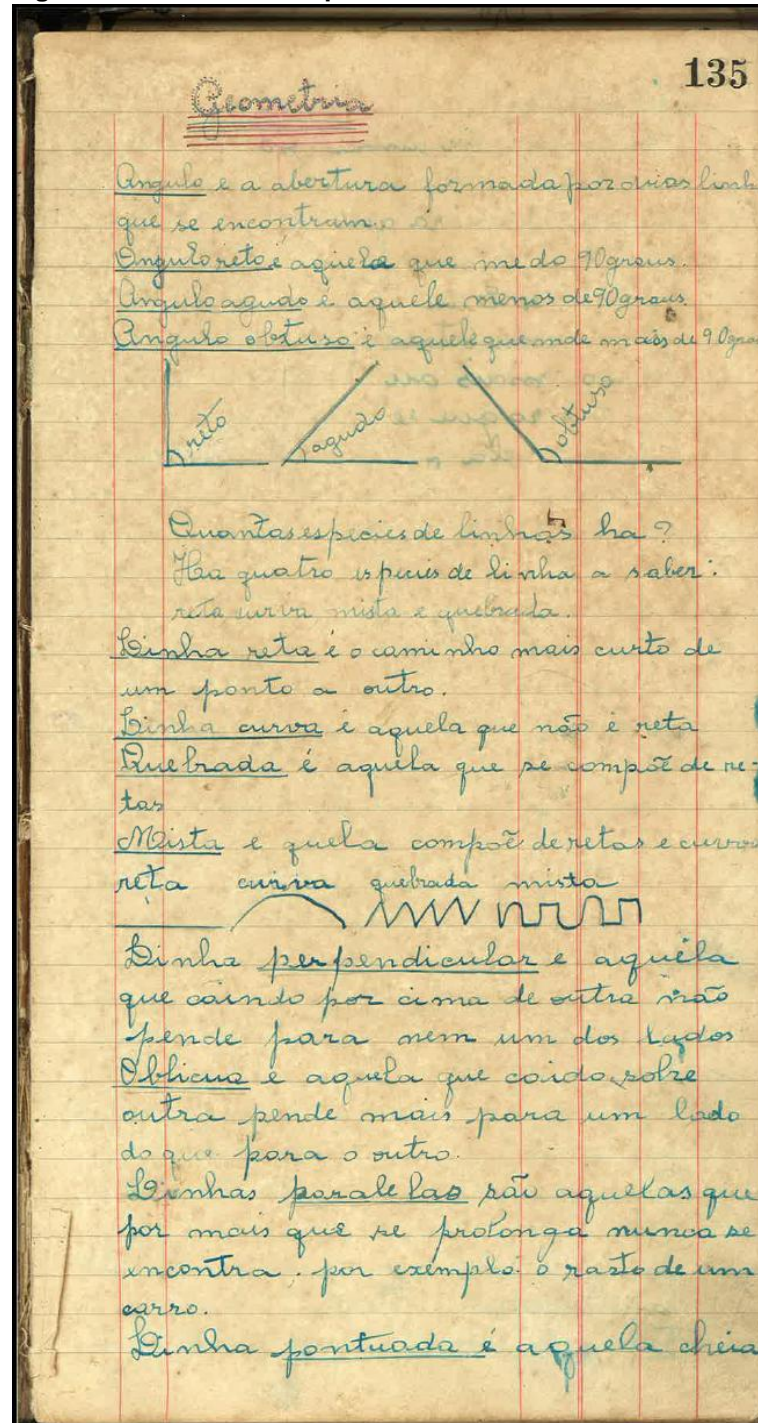 135
Geometria
Angulo e a abertura formada por duas linh
que se encontram.
Angulo reto é aquele que mede 90 graus.
Angulo agudo é aquêle menos de 90 graus.
Angulo obtuso é aquêle que mde mais de 90 grau
reto agudo obtuso
Quantas especies de linhas ha?
Ha quatro especies de linha a saber:
reta curva mista e quebrada.
Linha reta é o caminho mais curto de
um ponto a outro.
Linha curva é aquela que não é reta
Quebrada é aquéla que se compõe de re-
tas
Mista e quela compoẽ de retas e curvas
reta curva quebrada mista
Linha perpendicular e aquéla
que caindo por cima de outra não
pende para nem um dos lados
Oblicua é aquela que caido sobre
outra pende mais para um lado
do que para o outro.
Linhas paralelas são aquelas que
por mais que se prolonga nunca se
encontra. por exemplo o rasto de um
carro.
Linha pontuada é aquela cheia